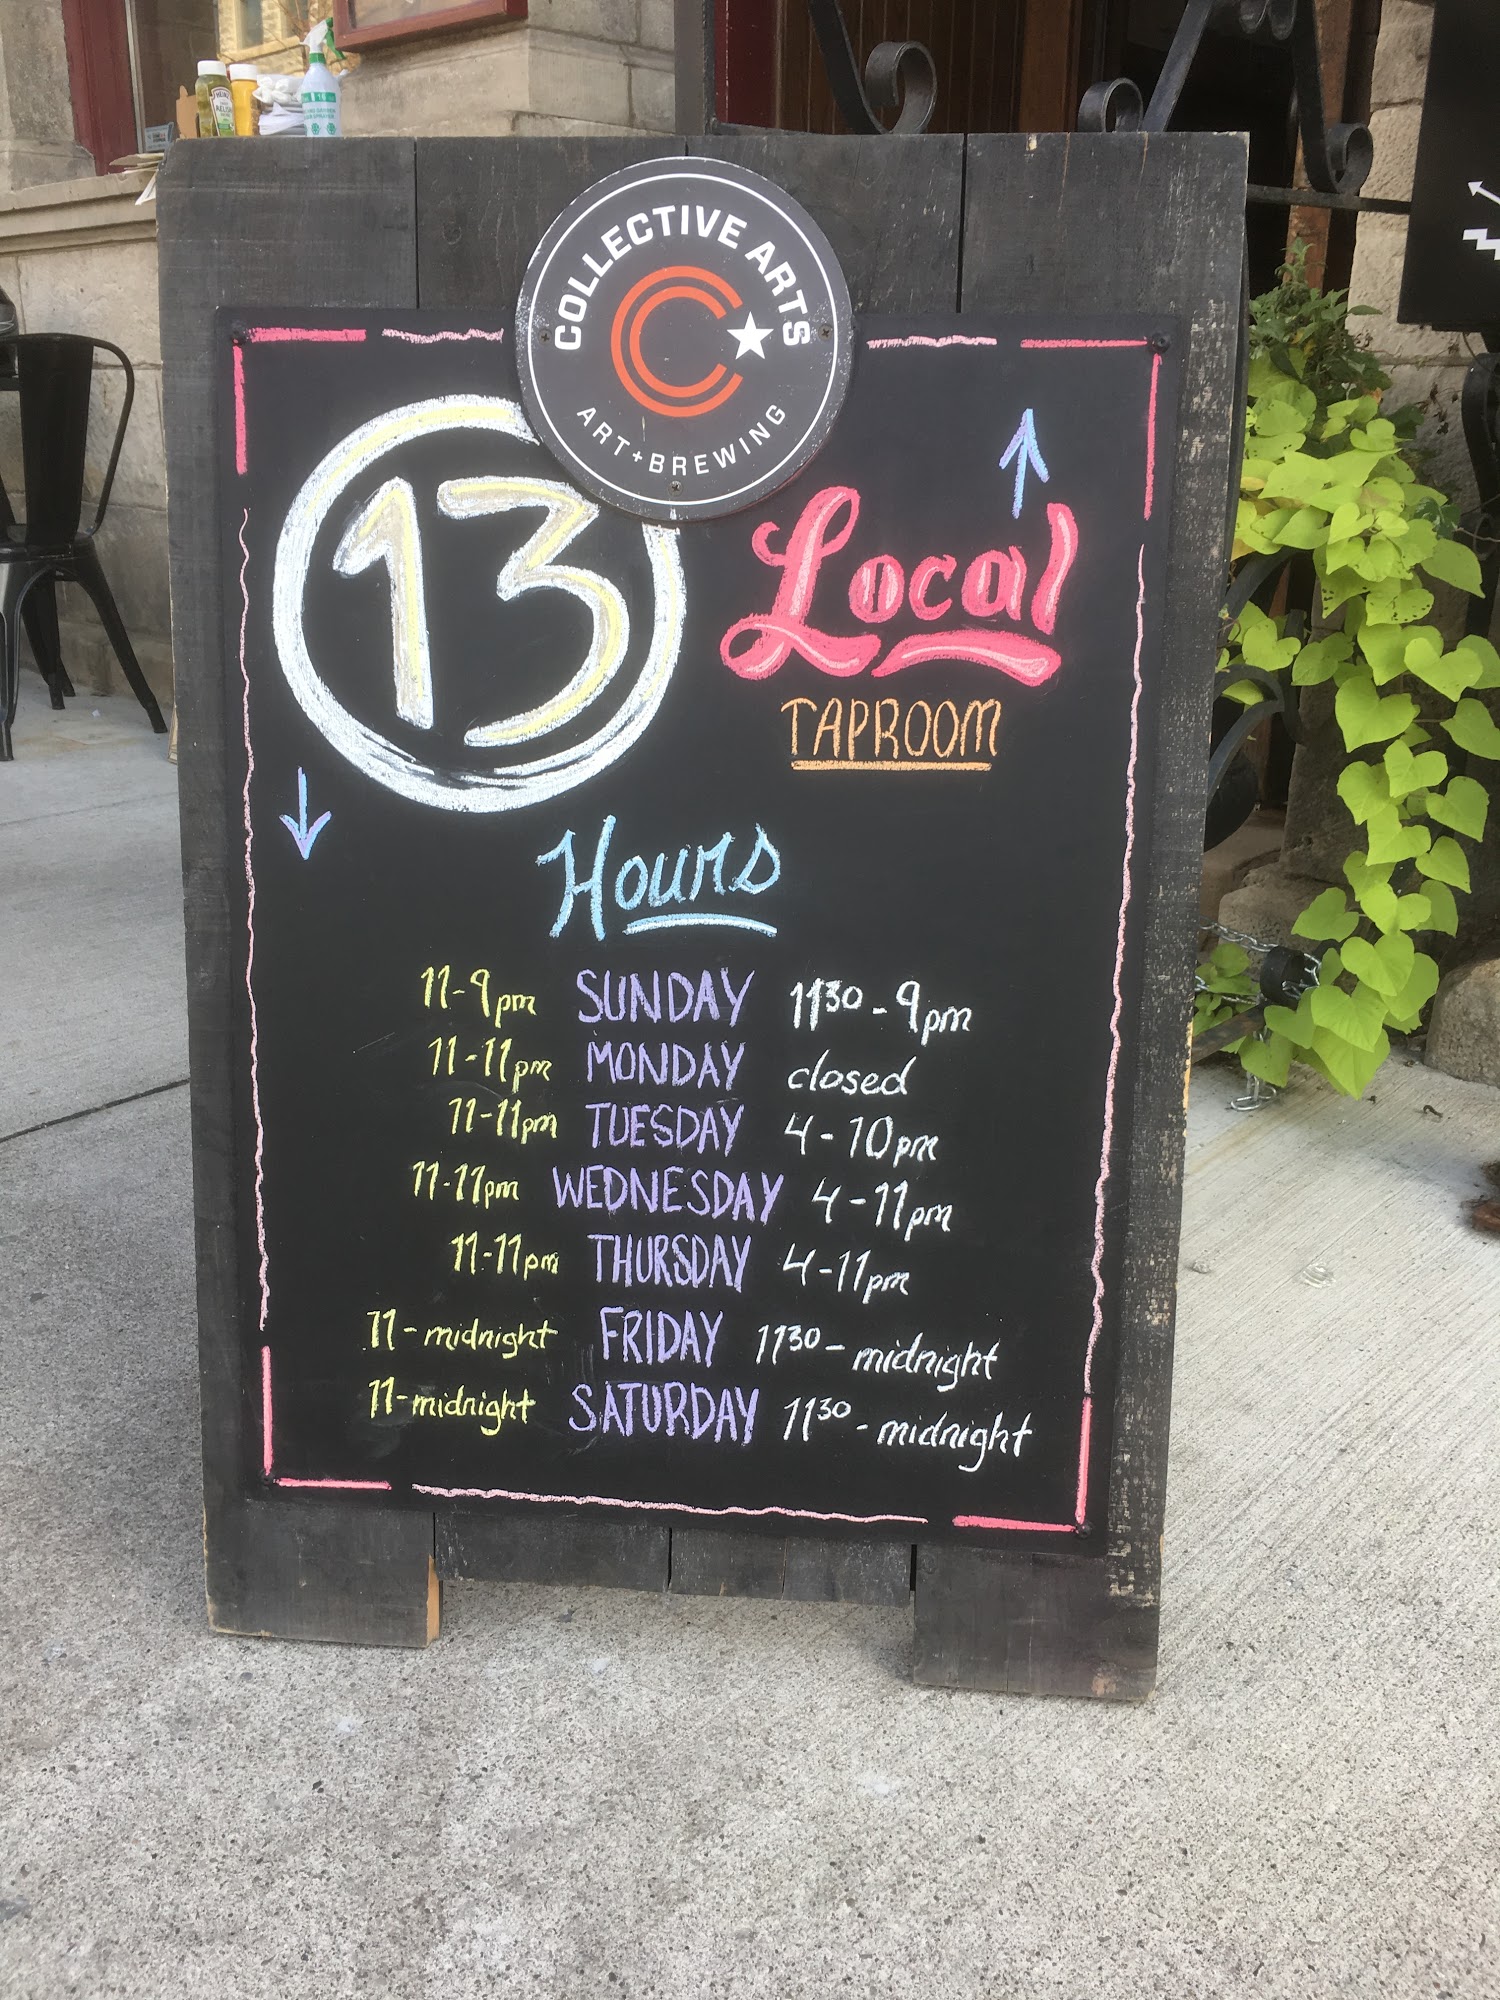 HEINZ
RELISH
COLLECTIVE ARTS
ART+BREWING
13
Local
TAPROOM
Hours
11-9pm SUNDAY 11³⁰-9pm
11-11pm MONDAY closed
11-11pm TUESDAY 4-10pm
11-11pm WEDNESDAY 4-11pm
11-11pm THURSDAY 4-11pm
11-midnight FRIDAY 11³⁰-midnight
11-midnight SATURDAY 11³⁰-midnight